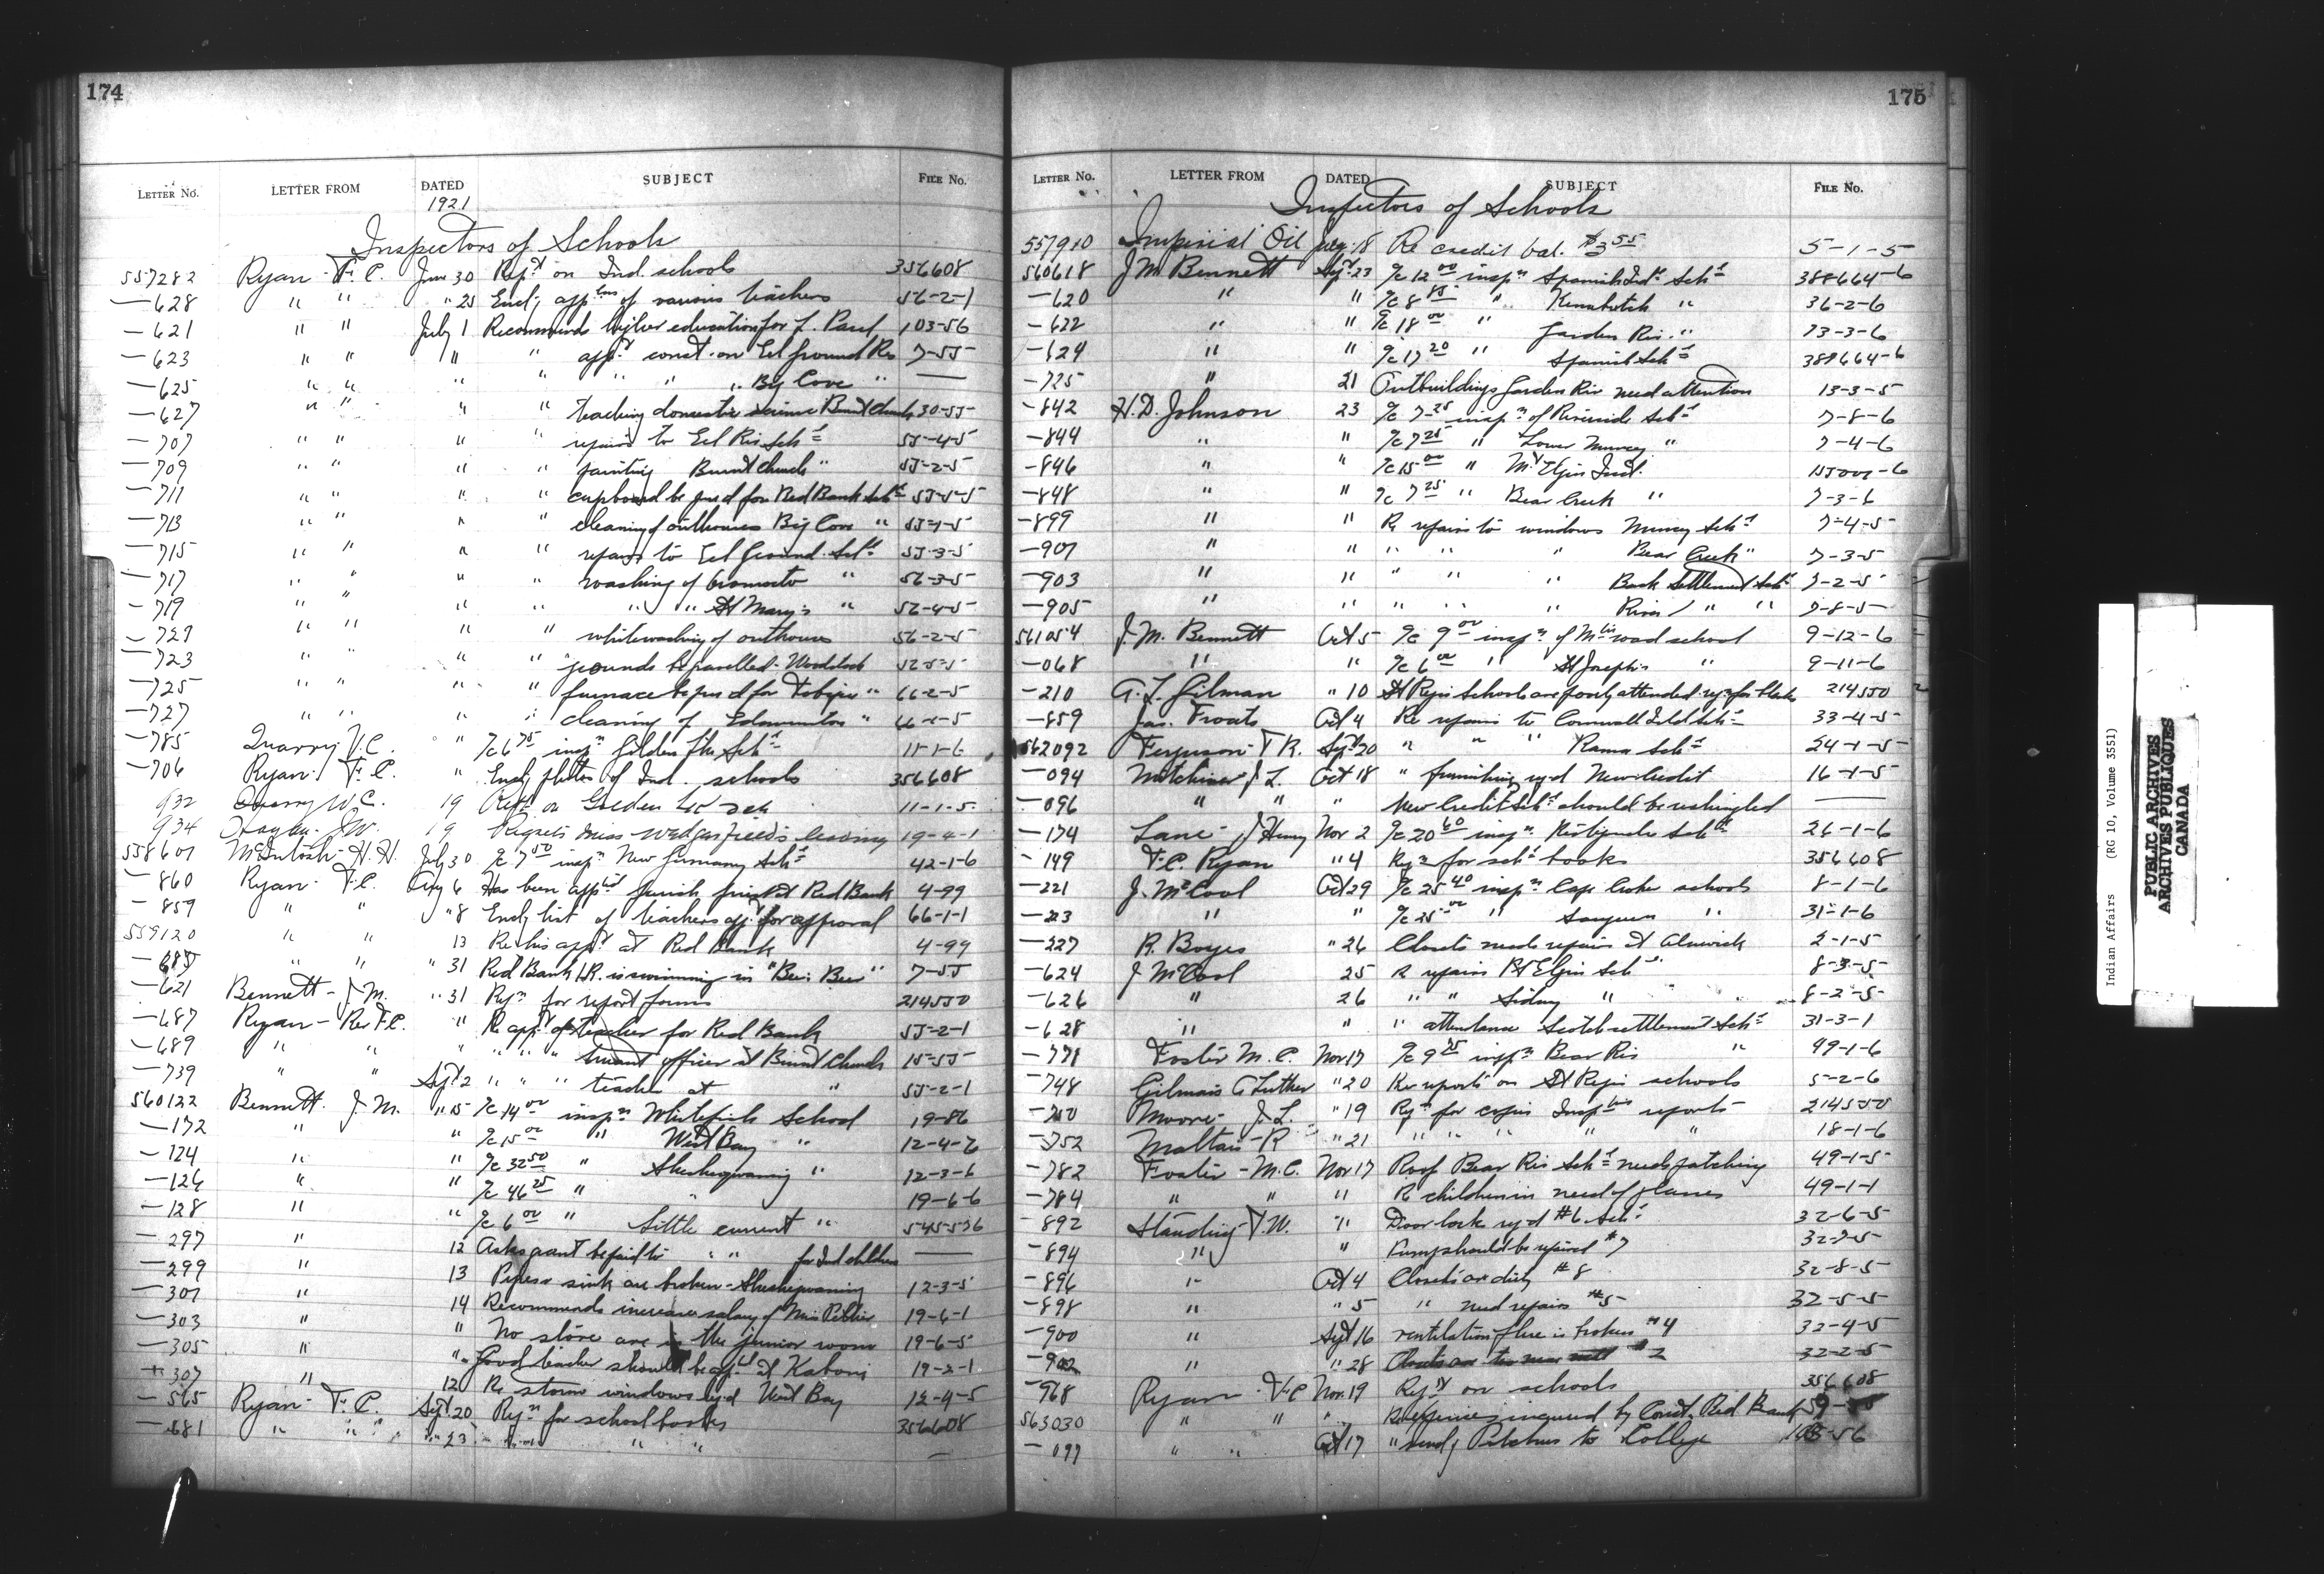 174
LETTER No. LETTER FROM DATED SUBJECT FILE No.
1921
Inspectors of Schools
557282 Ryan - F. C. June 30 Rept on Ind. schools 356608
—628 " " " 25 Encl; appltns of various teachers 56-2-1
—621 " " July 1 Recommends higher education for L. Paul 103-56
—623 " " " " appt const. on Eel Ground Res 7-55
—625 " " " " " " " Big Cove " —
—627 " " " " teaching domestic science Burnt Church 30-55
—707 " " " " repairs to Eel Riv. Schl 55-4-5
—709 " " " " painting Burnt Church " 55-2-5
—711 " " " " cupboard be prd for Red Bank Schl 55-5-5
—713 " " " " cleaning of outhouses Big Cove " 55-1-5
—715 " " " " repairs to Eel Ground Schl 55-3-5
—717 " " " " washing of " 56-3-5
—719 " " " " " " St Mary's " 56-4-5
—721 " " " " whitewashing of outhouses 56-2-5
—723 " " " " grounds be gravelled - Woodstock 52-5-5
—725 " " " " furnace be prd for Tobique " 66-2-5
—727 " " " " cleaning of Edmundston " 66-1-5
—785 Quarry J. C. " %c 6 75 inspn Golden Lke Schl 11-1-6
—706 Ryan - F. C. " Encl; photos of Ind. schools 356608
932 Quarry W. C. 19 Rept on Golden Lk Sch 11-1-5
934 J. W. 19 Regrets Miss leaving 19-4-1
558601 McIntosh - H. H. July 30 %c 7 50 inspn New Germany Schl 42-1-6
—860 Ryan - F. C. Aug 6 Has been apptd parish priest at Red Bank 4-99
—859 " " " 8 Encly list of teachers for approval 66-1-1
559120 " " 13 Re his appt at Red Bank 4-99
—685 " " " 31 Red Bank I.R. is swimming in "Bee: Beer" 7-55
—621 Bennett - J. M. " 31 Reqn for report forms 214550
—687 Ryan - Rev F. C. " Re appt of teacher for Red Bank 55-2-1
—689 " " " " " " truant officer at Burnt Church 15-55
—739 " " Sept 2 " " " teacher at " 55-2-1
560122 Bennett. J. M. " 15 %c 14 00 inspn Whitefish School 19-86
—172 " " %c 15 00 " West Bay " 12-4-6
—124 " " %c 32 50 " Sheshegwaning " 12-3-6
—126 " " %c 46 25 " " 19-6-6
—128 " " %c 6 00 " Little current " 545536
—297 " 12 Asks grant be paid to " " for Ind children —
—299 " 13 Pipes & sink are broken - Sheshegwaning 12-3-5
—301 " 14 Recommends increase salary of Miss Peltier 19-6-1
—303 " " No stove are in the junior room 19-6-5
—305 " " Good teacher should be apptd at Kaboni 19-2-1
—307 " 12 Re storm windows reqd West Bay 12-4-5
—565 Ryan - F. C. Sept 20 Reqn for school books 356608
—681 " " " 23 " " " " —
175
LETTER No. LETTER FROM DATED SUBJECT FILE No.
Inspectors of Schools
557910 Imperial Oil July 18 Re credit bal. $3 55 5-1-5
560618 J. M. Bennett Sept 23 %c 12 00 inspn Spanish Indl Schl 388664-6
—620 " " %c 8 85 " " 36-2-6
—622 " " %c 18 00 " Garden Riv. " 13-3-6
—624 " " %c 17 20 " Spanish Schl 388664-6
—725 " 21 Outbuildings Garden Riv need attention 13-3-5
—842 H. D. Johnson 23 %c 7 25 inspn of Riverside Schl 7-8-6
—844 " " %c 7 25 " Lower Muncey " 7-4-6
—846 " " %c 15 00 " Mt Elgin Ind. 155001-6
—848 " " %c 7 25 " Bear Creek " 7-3-6
—899 " " Re repairs to windows Muncey Schl 7-4-5
—901 " " " " " Bear Creek " 7-3-5
—903 " " " " " Back Settlement Schl 7-2-5
—905 " " " " " River " " 7-8-5
561054 J. M. Bennett Oct 5 %c 9 00 inspn of school 9-12-6
—068 " " %c 6 00 " St Joseph's " 9-11-6
—210 A. L. Gilman " 10 St Regis Schools are poorly attended. reqn for blanks 214550
—859 Jas. Froats Oct 4 Re repairs to Cornwall Isld Schl 33-4-5
562092 Ferguson - T. R. Sept 20 " " " Rama Schl 24-1-5
—094 Mitchener J. L. Oct 18 " furnishing reqd New Credit 16-1-5
—096 " " " New Credit Schl should be reshingled —
—174 Lane - J Henry Nov 2 %c 20 60 inspn Restigouche Schl 26-1-6
—149 F. C. Ryan " 4 Reqn for schl books 356608
—221 J. McCool Oct 29 %c 25 40 inspn Cape Croker schools 8-1-6
—223 " " %c 25 00 " Saugeen " 31-1-6
—227 R. Boyes " 26 Closets needs repairs at Alnwick 2-1-5
—624 J McCool 25 Re repairs Pt Elgin Sch 8-3-5
—626 " 26 " " Sidney " 8-2-5
—628 " " " attendance Scotch settlement Schl 31-3-1
—778 Foster M. C. Nov 17 %c 9 75 inspn Bear Riv " 49-1-6
—748 Gilman's A Luther " 20 Re reports on St Regis schools 5-2-6
—750 Moore - J. L. " 19 Reqn for copies Insptrs reports 214550
—752 Maltais - R " 21 " " " " " 18-1-6
—782 Foster - M. C. Nov 17 Roof Bear Riv Schl needs patching 49-1-5
—784 " " " Re children in need of glasses 49-1-1
—892 Standing T. W. " Door lock reqd #6 Schl 32-6-5
—894 " " Pump should be repaired #7 32-7-5
—896 " Oct 4 Closets are dirty #8 32-8-5
—898 " " 5 " need repairs #5 32-5-5
—900 " Sept 16 Ventilation flue is broken #4 32-4-5
—902 " " 28 Closets are too near well #2 32-2-5
—968 Ryan - F C Nov. 19 Rept on schools 356608
563030 " " " Re expenses incurred by Const. Red Bank
—099 " " Oct 17 " sendg Pitchers to College 103-56
Indian Affairs (RG 10, Volume 3551)
PUBLIC ARCHIVES
ARCHIVES PUBLIQUES
CANADA